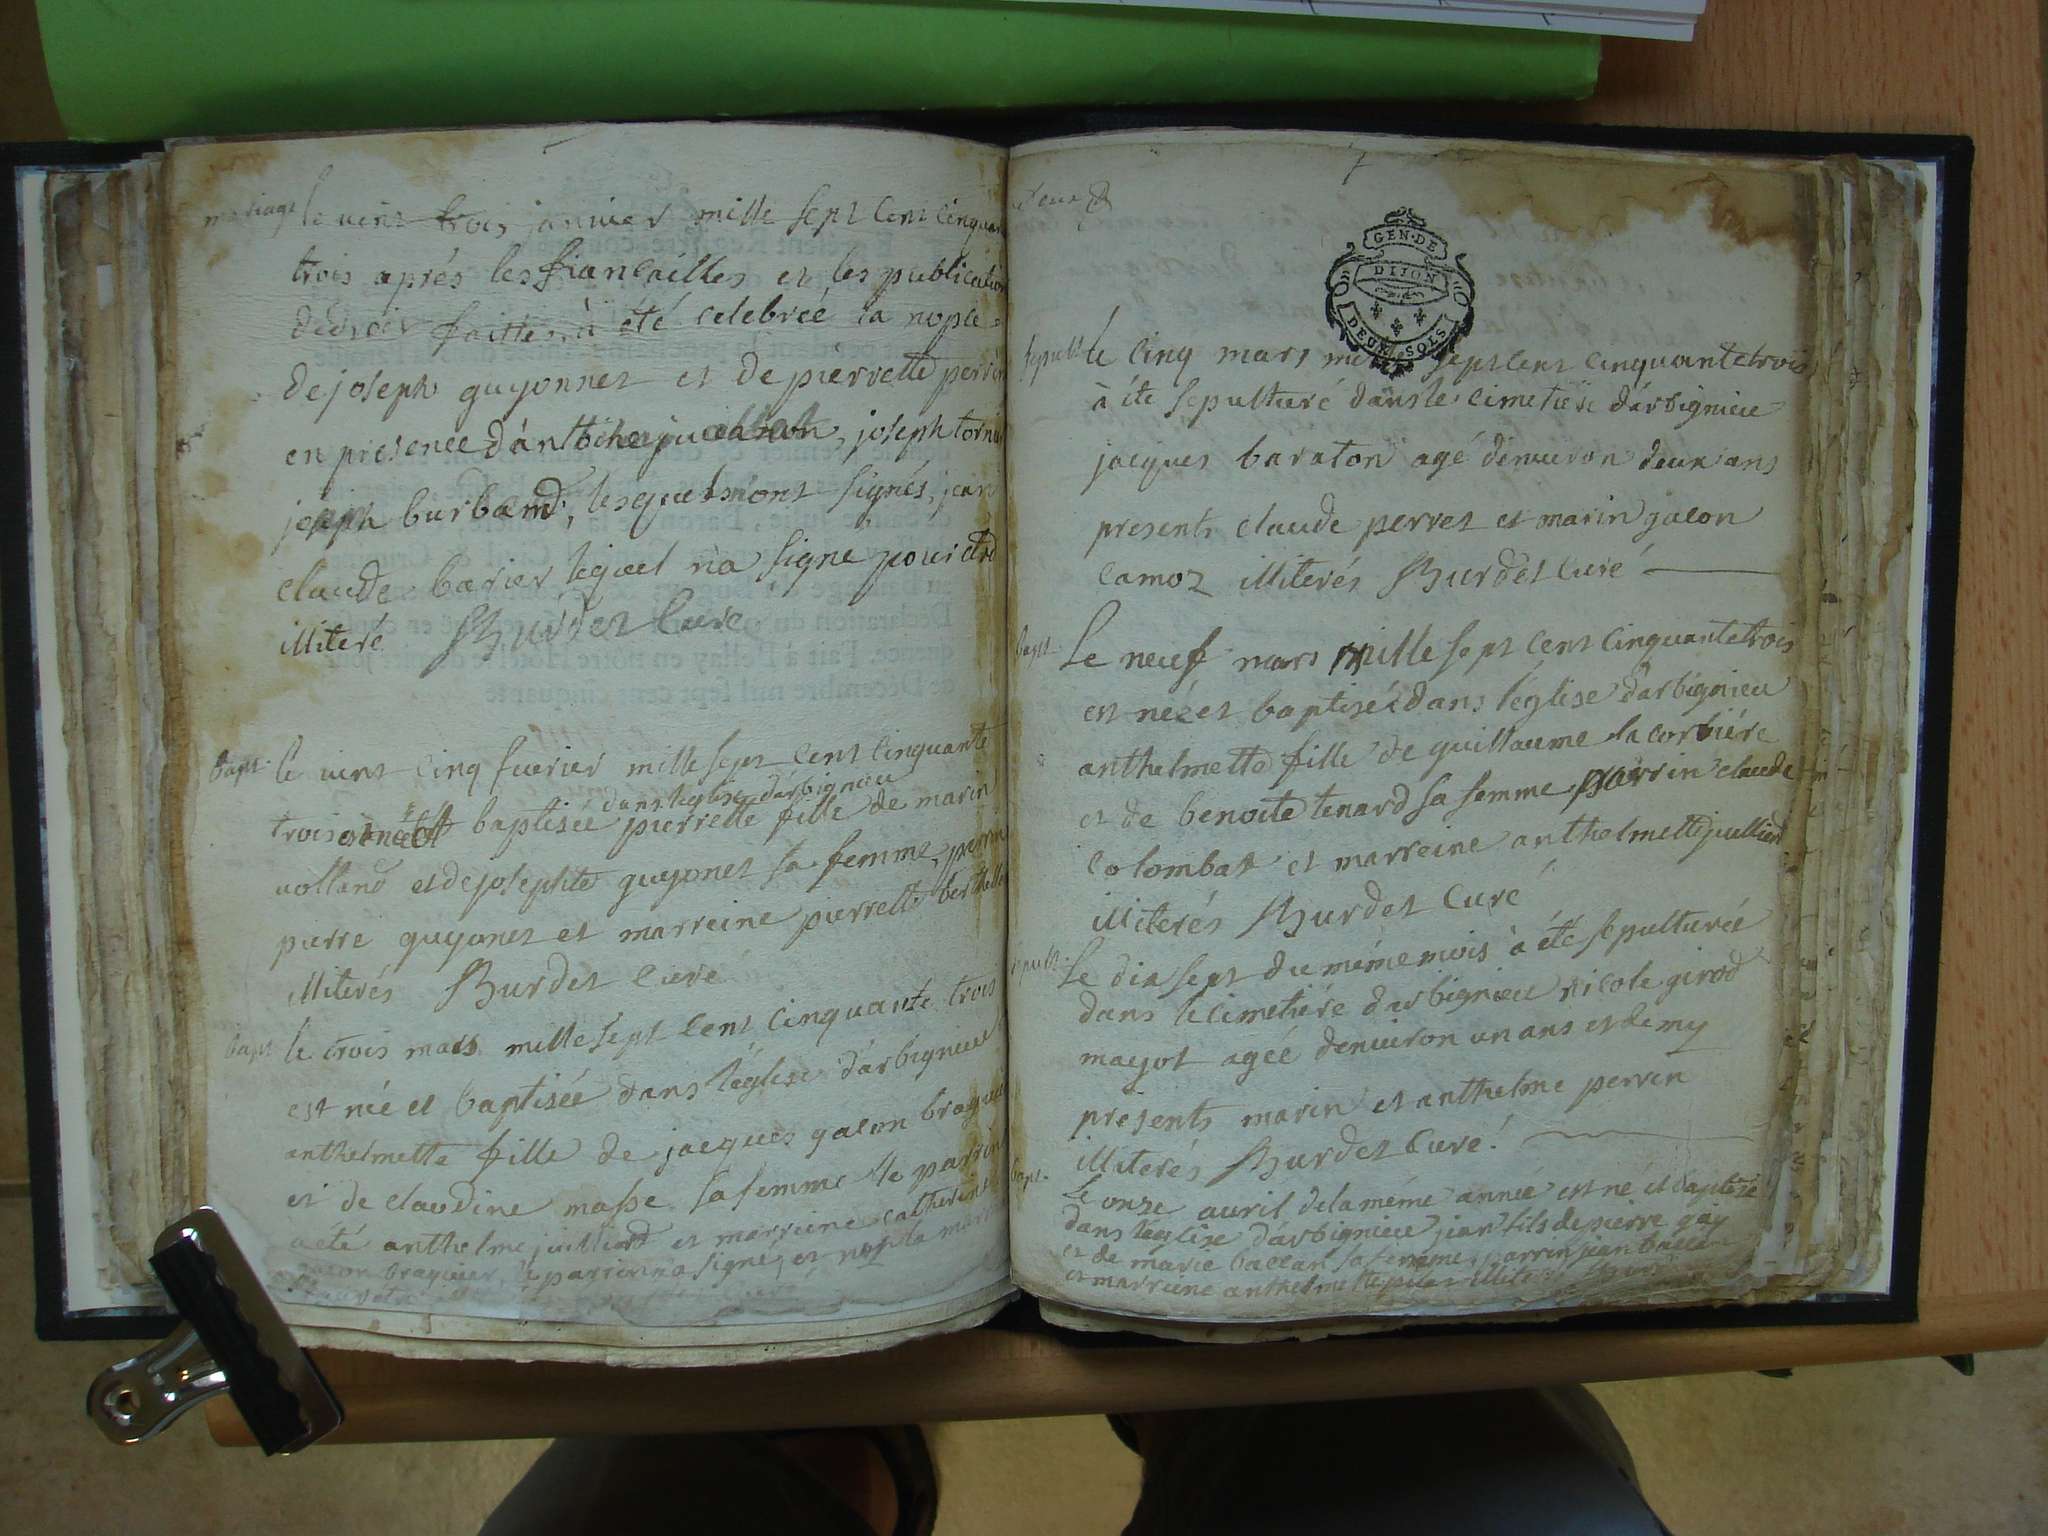 mariage le vint trois janvier mille sept cent cinquan
trois aprés les fiancailles et les publication
de droit faittes à été celebreé la nopce
de joseph guyonnet et de pierrette perrin
en presence d'anthoine, joseph
joseph burband, lesquels n'ont signés, jean
claude barier lequel n'a signé pour etre
illiteré Burdet Curé
bapt. le vint cinq fuerier mille sept cent cinquante
dans l'église d'arbignieu
trois est née et baptisée pierrette fille de marin
volland et de josephte guyonet sa femme, parrin
pierre guyonet et marreine pierrette berthelet
illiterés Burdet curé
bapt le trois mars mille sept cent cinquante trois
est née et baptisée dans l'église d'arbignieu
anthelmette fille de jacques gacon braquier
et de claudine masse sa femme le parrin
a été anthelme juilliard et marreine catherine
gacon braquier, le parrin n'a signé, et non la marr
deux 8
7
GEN. DE
DIJON
DEUX SOLS
sepult le cinq mars mille sept cent cinquante trois
à été sepulturé dans le cimetiere d'arbignieu
jacques baraton agé d'enuiron deux ans
presents claude perret et marin gacon
camoz illiterés Burdet Curé
bapt. Le neuf mars mille sept cent cinquante trois
est née et baptisée dans l'église d'arbignieu
anthelmette fille de guillaume la corbiére
et de benoite tenard sa femme parrin claude
colombat et marreine anthelmette jullien
illiterés Burdet Curé
sepult. Le dix sept du méme mois à été sepulturée
dans le cimetiére d'arbignieu nicole girod
mayot agée d'enuiron un ans et demy
presents marin et anthelme perrin
illiterés Burdet Curé.
bapt. Le onze auril de la méme année est né et baptisé
dans l'église d'arbignieu jean fils de pierre gay
et de marie ballart sa femme, parrin jean
et marreine anthelmette